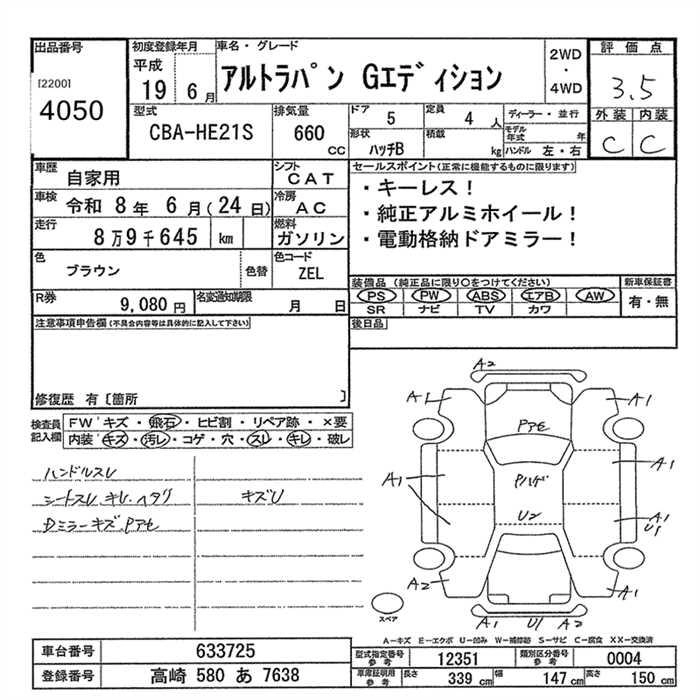 出品番号
[2200]
4050
初度登録年月
平成
19 6月
車名・グレード
アルトラパン Gエディション
2WD
・
4WD
評価点
3.5
外装 内装
C C
型式
CBA-HE21S
排気量
660
cc
ドア
5
定員
4 人
形状
ハッチB
積載
kg
ディーラー・並行
モデル年式 年
ハンドル 左・右
車歴
自家用
シフト
CAT
車検
令和 8年 6月(24日)
冷房
AC
走行
8万9千645 km
燃料
ガソリン
色
ブラウン
色替
色コード
ZEL
R券
9,080 円
名変通知期限
月 日
セールスポイント(正常に機能するものに限ります)
・キーレス!
・純正アルミホイール!
・電動格納ドアミラー!
装備品 (純正品に限り○をつけてください)
新車保証書
PS PW ABS エアB AW
SR ナビ TV カワ
有・無
後日品
注意事項申告欄(不具合内容等は具体的に記入して下さい)
修復歴 有〔箇所 〕
検査員記入欄
FW キズ・飛石・ヒビ割・リペア跡・×要
内装 キズ・汚レ・コゲ・穴・スレ・キレ・破レ
ハンドルスレ
シートスレ.キレ.ヘタリ
キズU
Dミラーキズ.Pアセ
A2
A1
A1
Pアセ
A1
A1
Pハゲ
A1
U1
U2
A2
A2
A1 U1 A2
スペア
A−キズ E−エクボ U−凹み W−補修跡 S−サビ C−腐食 XX−交換済
車台番号
633725
登録番号
高崎 580 あ 7638
型式指定番号
参考
12351
類別区分番号
参考
0004
車庫証明用
参考
長さ
339 cm
幅
147 cm
高さ
150 cm